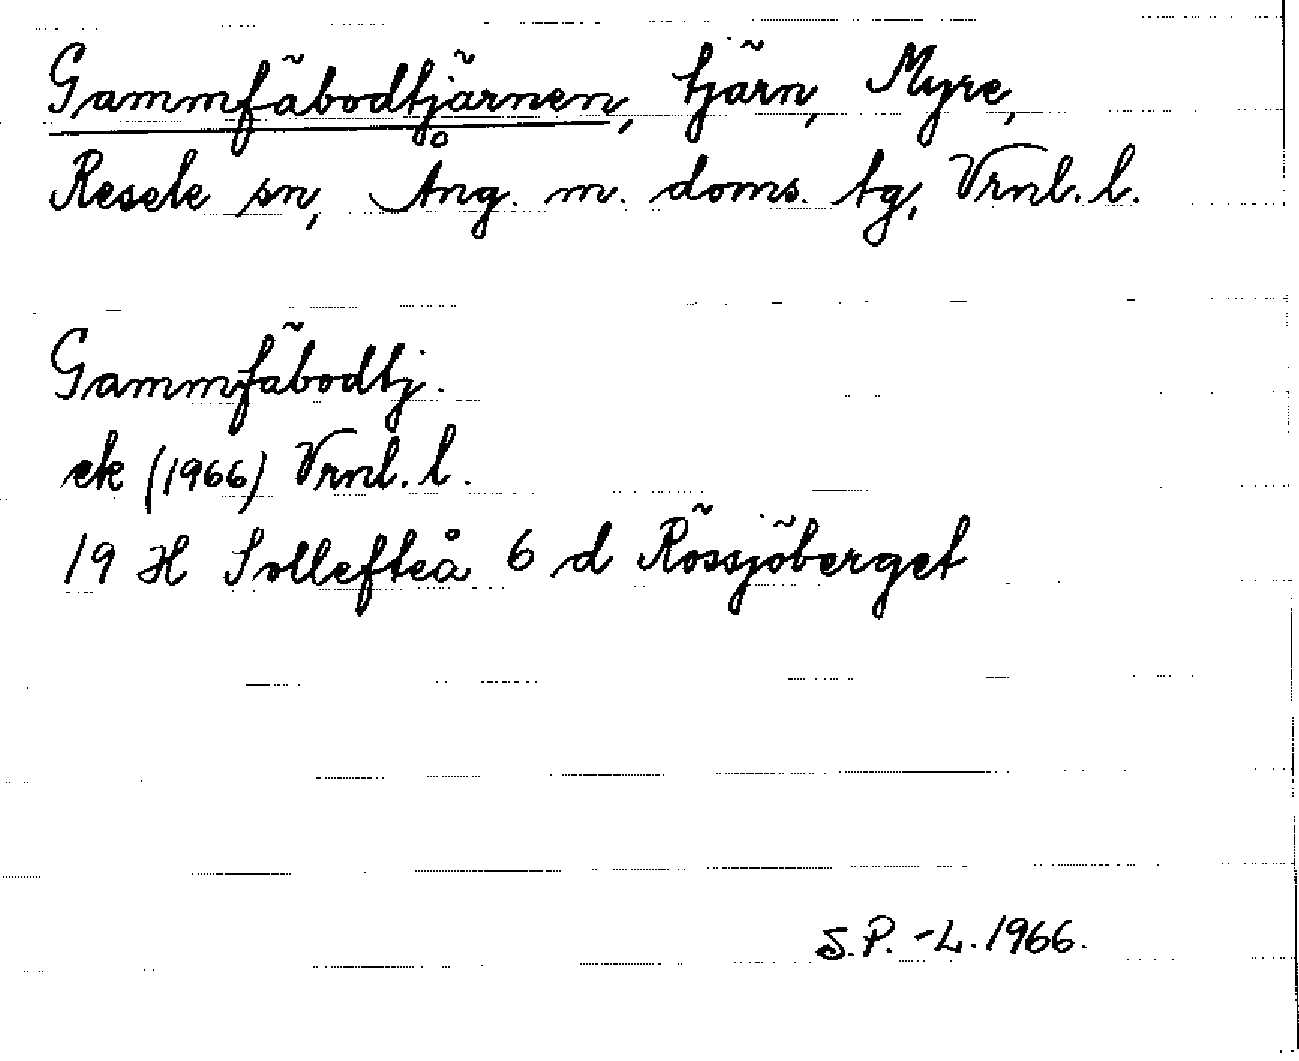 Gammfäbodtjärnen, tjärn, Myre,
Resele sn, Ång. m. doms. tg, Vrnl. l.
Gammfäbodtj.
ek (1966) Vrnl. l.
19 H Sollefteå 6 d Rössjöberget
S.P.-L. 1966.